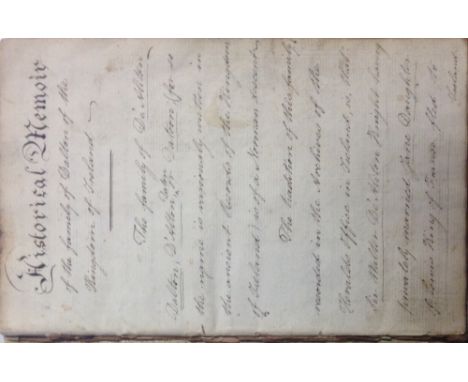 Historical Memoir
of the family of Dalton of the
Kingdom of Ireland
The family of De Alton
Dalton D'Alton or Dalton (for so
the name is variously written in
the ancient Records of the Kingdom
of Ireland) is of a Norman descent
The tradition of this family
recorded in the Archives of the
Heralds Office in Ireland, is, that
Sir Walter De Alton Knight having
privately married Jane Daughter
to Louis King of France fled to
Ireland